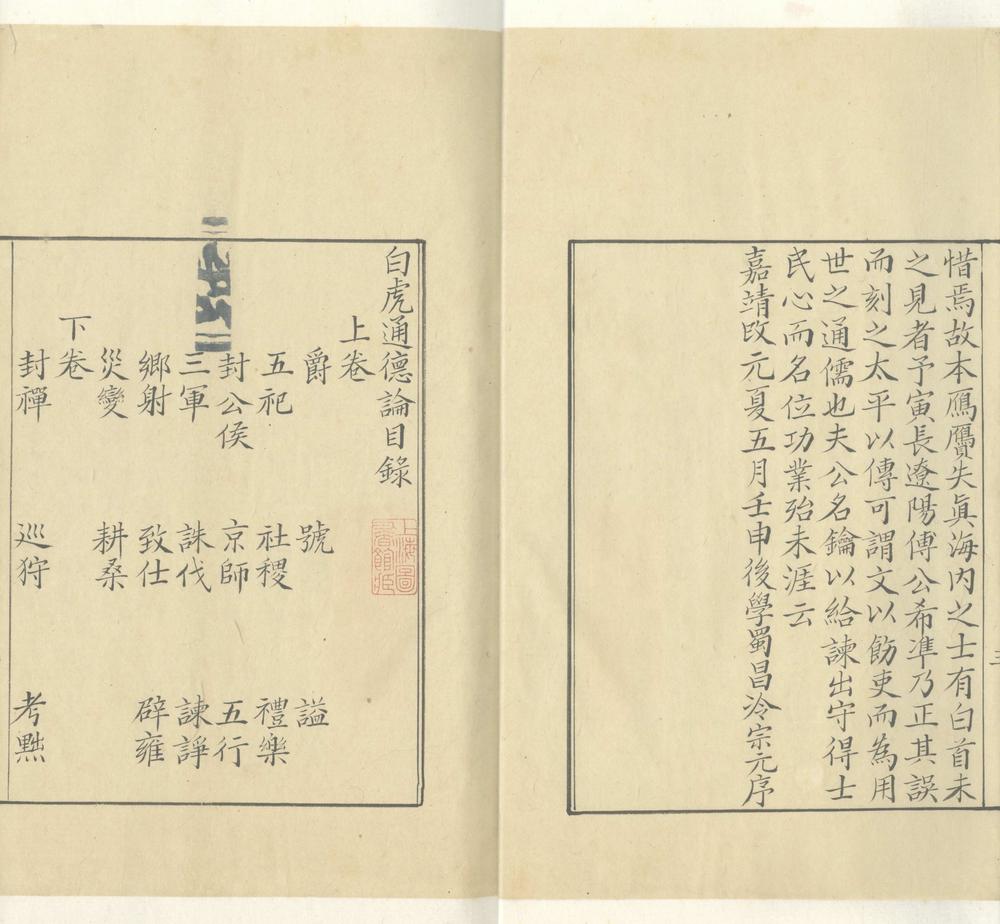 惜焉故本鴈贗失眞海内之士有白首未
之見者予寅長遼陽傅公希凖乃正其誤
而刻之太平以傳可謂文以飭吏而為用
世之通儒也夫公名鑰以給諫出守得士
民心而名位功業殆未涯云
嘉靖改元夏五月壬申後學蜀昌冷宗元序
白虎通德論目錄
上卷
爵 號 謚
五祀 社稷 禮樂
封公侯 京師 五行
三軍 誅伐 諫諍
鄉射 致仕 辟雍
災變 耕桑
下卷
封禪 巡狩 考黜
上海圖
書館臧